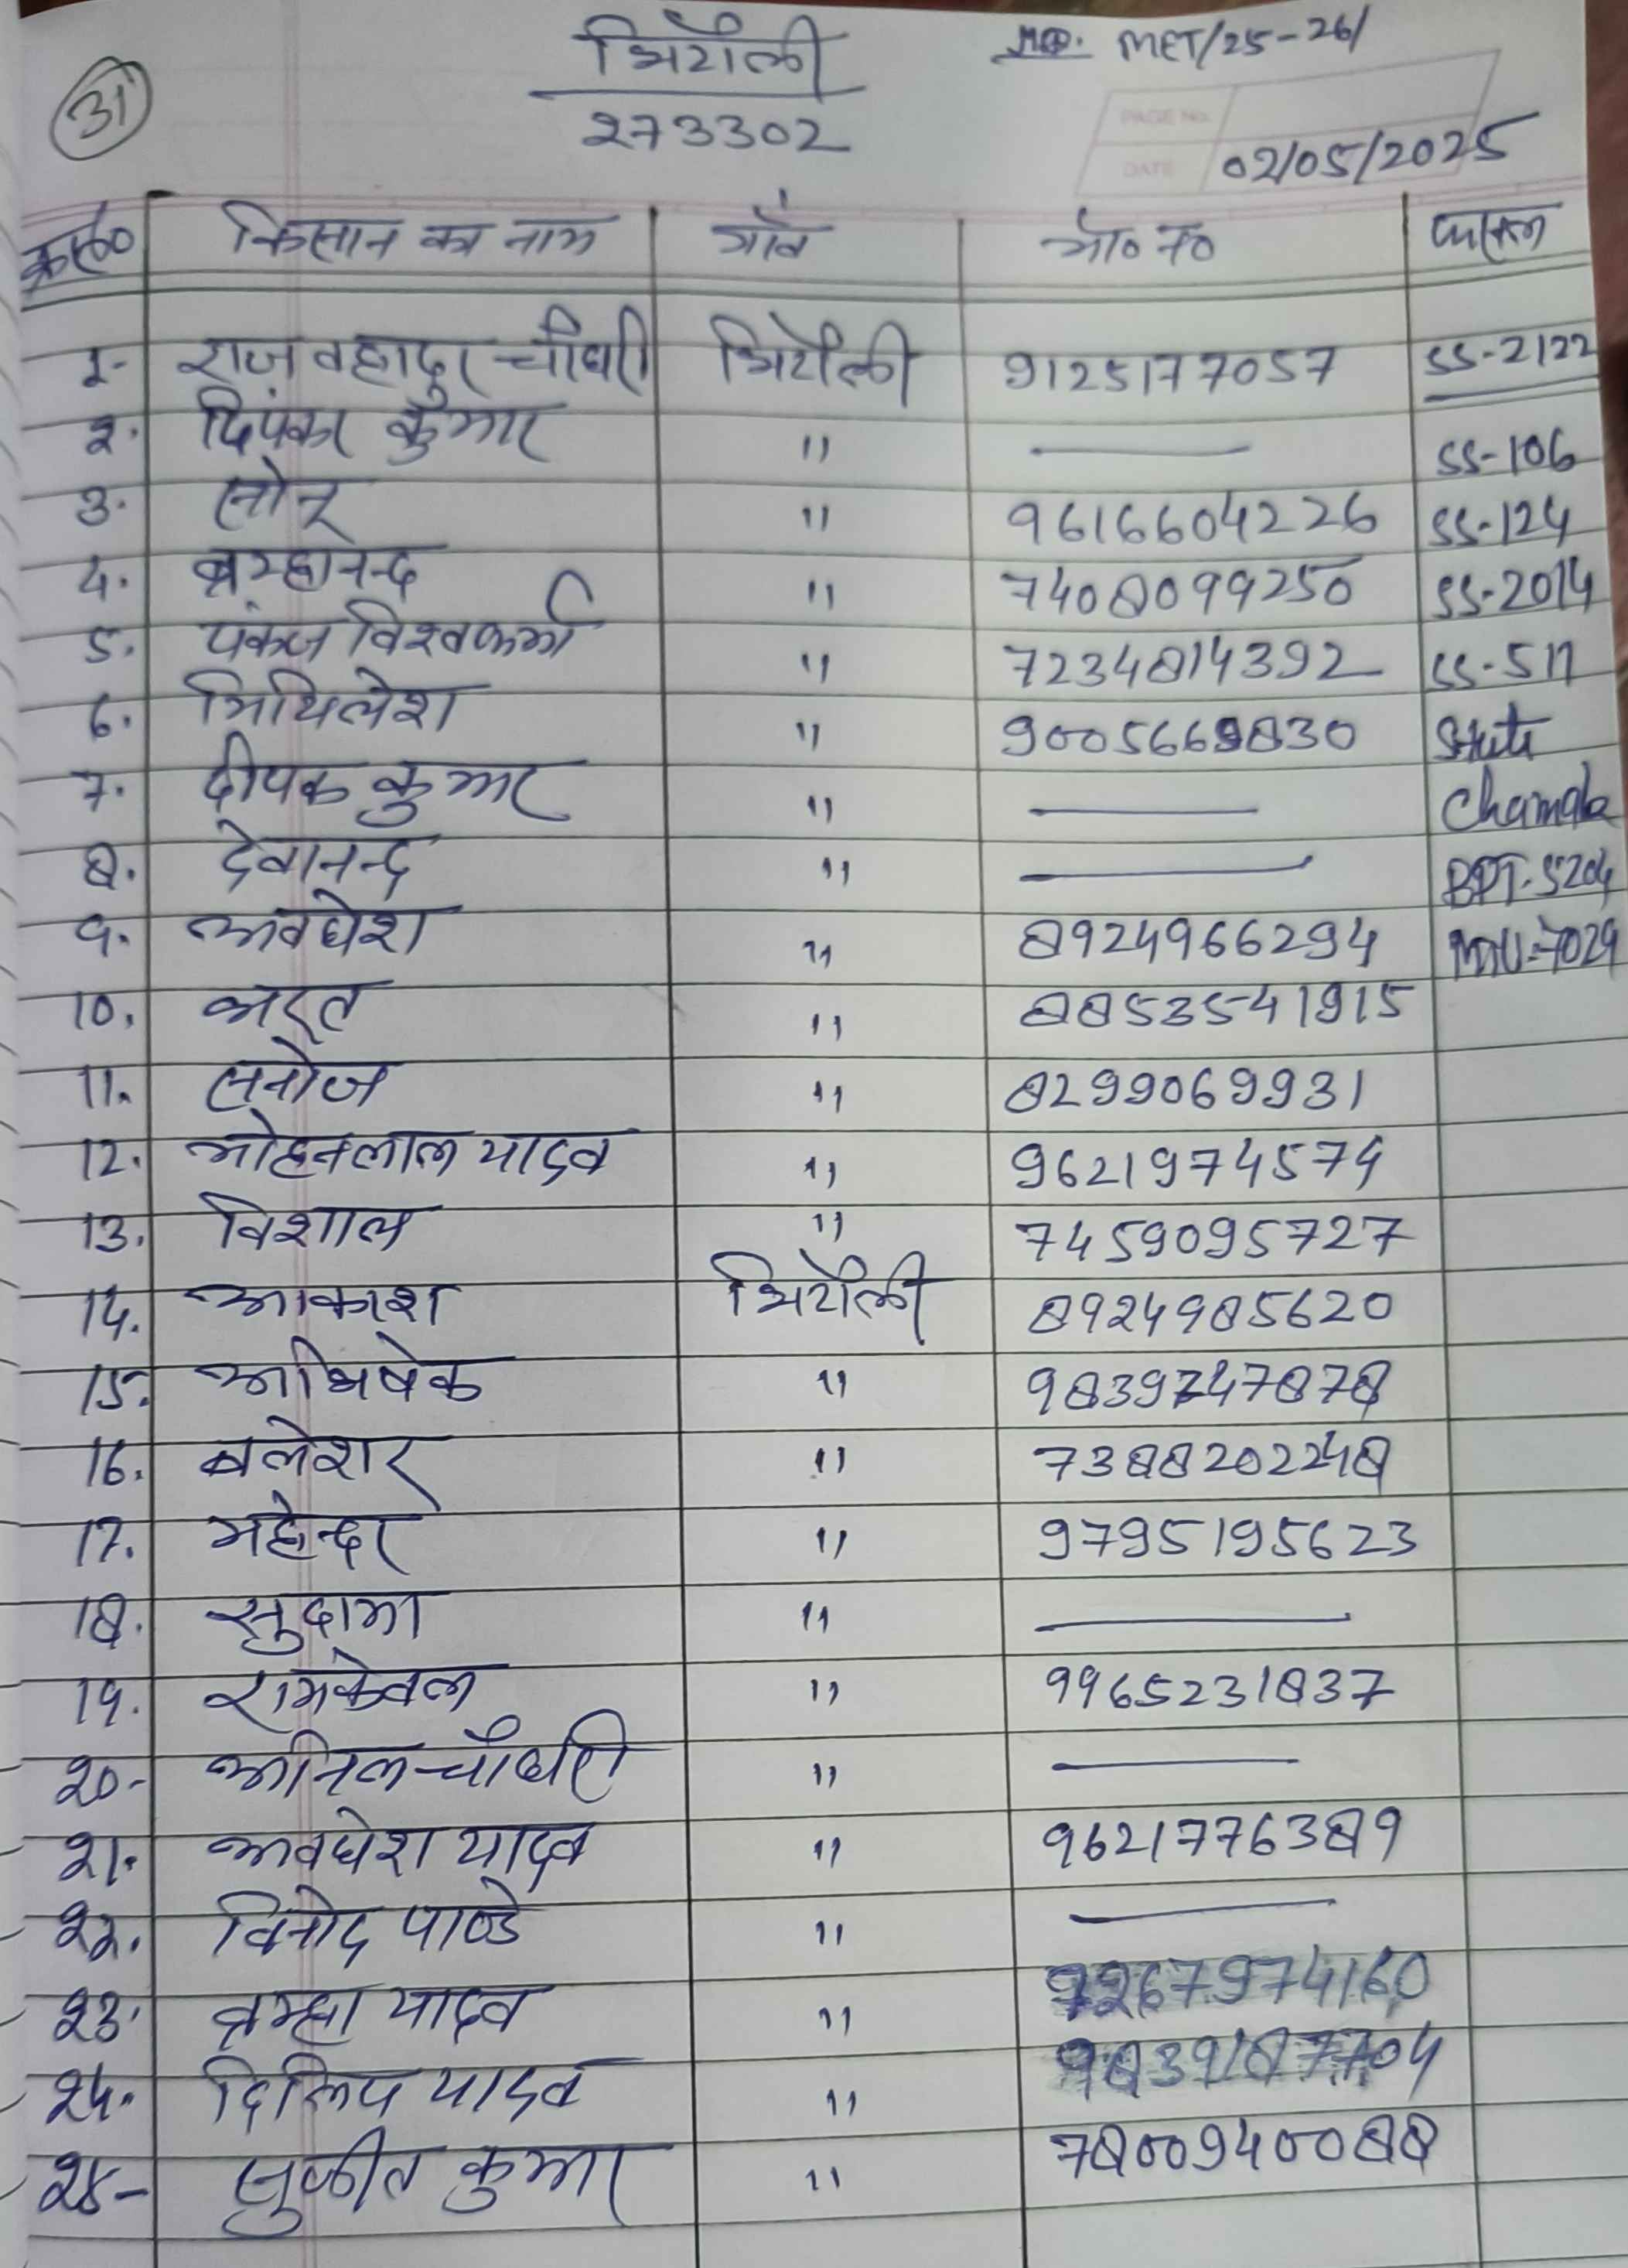 31
भिटौली
MET/25-26/
273302
PAGE NO.
DATE 02/05/2025
क्र०सं० किसान का नाम गाँव मो० नं० फसल
1- राज वहादुर चौधरी भिटौली 9125177057 SS-2122
2. दिपंकर कुमार " — SS-106
3. सोनू " 9616604226 SS-124
4. ब्रम्हानन्द " 7408099250 SS-2014
5. पंकज विश्वकर्मा " 7234814392 SS-511
6. मिथिलेश " 9005669830
7. दीपक कुमार " —
8. देवानन्द " — BPT-5204
9. अवधेश " 8924966294 MTU-7029
10. भरत " 8853541915
11. सनोज " 8299069931
12. मोहनलाल यादव " 9621974574
13. विशाल " 7459095727
14. आकाश भिटौली 8924985620
15. अभिषेक " 9839747878
16. बलेशर " 7388202248
17. महेन्दर " 9795195623
18. सुदामा " —
19. रामकेवल " 9965231837
20- अनिल चौधरी " —
21. अवधेश यादव " 9621776389
22. विनोद पाण्डे " —
23. ब्रम्हा यादव " 7267974160
24. दिलिप यादव " 9839187704
25- सुजीत कुमार " 7800940088